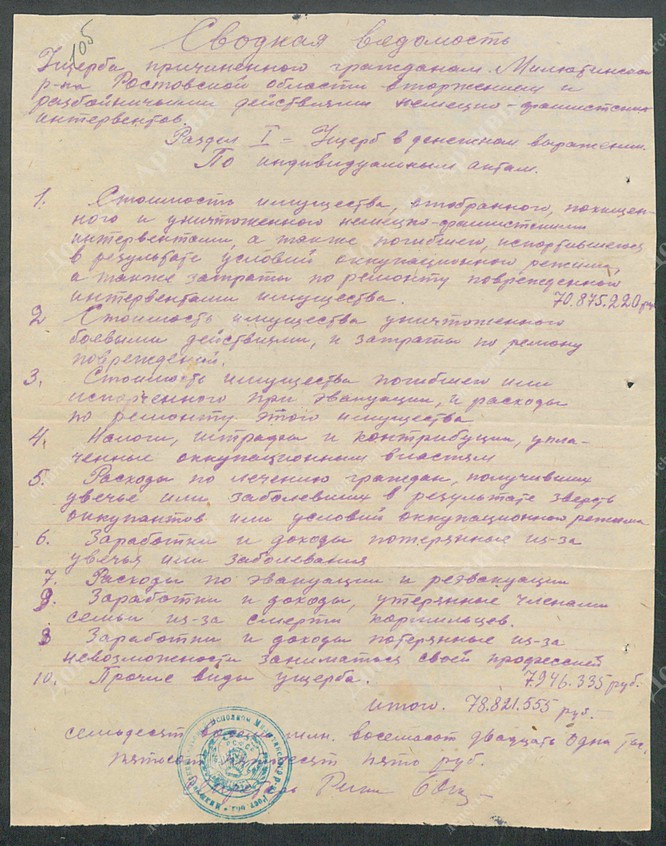 105
Сводная ведомость
Ущерба причиненного гражданам Милютинского
р-на Ростовской области вторжением и
разбойничьими действиями немецко-фашистских
интервентов.
Раздел I = Ущерб в денежном выражении.
По индивидуальным актам.
1. Стоимость имущества, отобранного, похищен-
ного и уничтоженного немецко-фашистскими
интервентами, а также погибшего, испортившегося
в результате условий оккупационного режима,
а также затраты по ремонту поврежденного
интервентами имущества. 70.875.220 руб
2 Стоимость имущества уничтоженного
боевыми действиями, и затраты по ремонту
повреждений.
3. Стоимость имущества погибшего или
испорченного при эвакуации, и расходы
по ремонту этого имущества
4. Налоги, штрафы и контрибуции, упла-
ченные оккупационным властям
5. Расходы по лечению граждан, получивших
увечье или заболевших в результате зверств
оккупантов или условий оккупационного режима
6. Заработки и доходы потерянные из-за
увечья или заболевания
7. Расходы по эвакуации и реэвакуации
8. Заработки и доходы, утерянные членами
семьи из-за смерти кормильцев.
9 Заработки и доходы потерянные из-за
невозможности заниматься своей профессией
10. Прочие виды ущерба. 7946.335 руб.
итого. 78.821.555 руб.
семьдесят восемь мил. восемьсот двадцать одна тыс.
пятьсот пятьдесят пять руб.